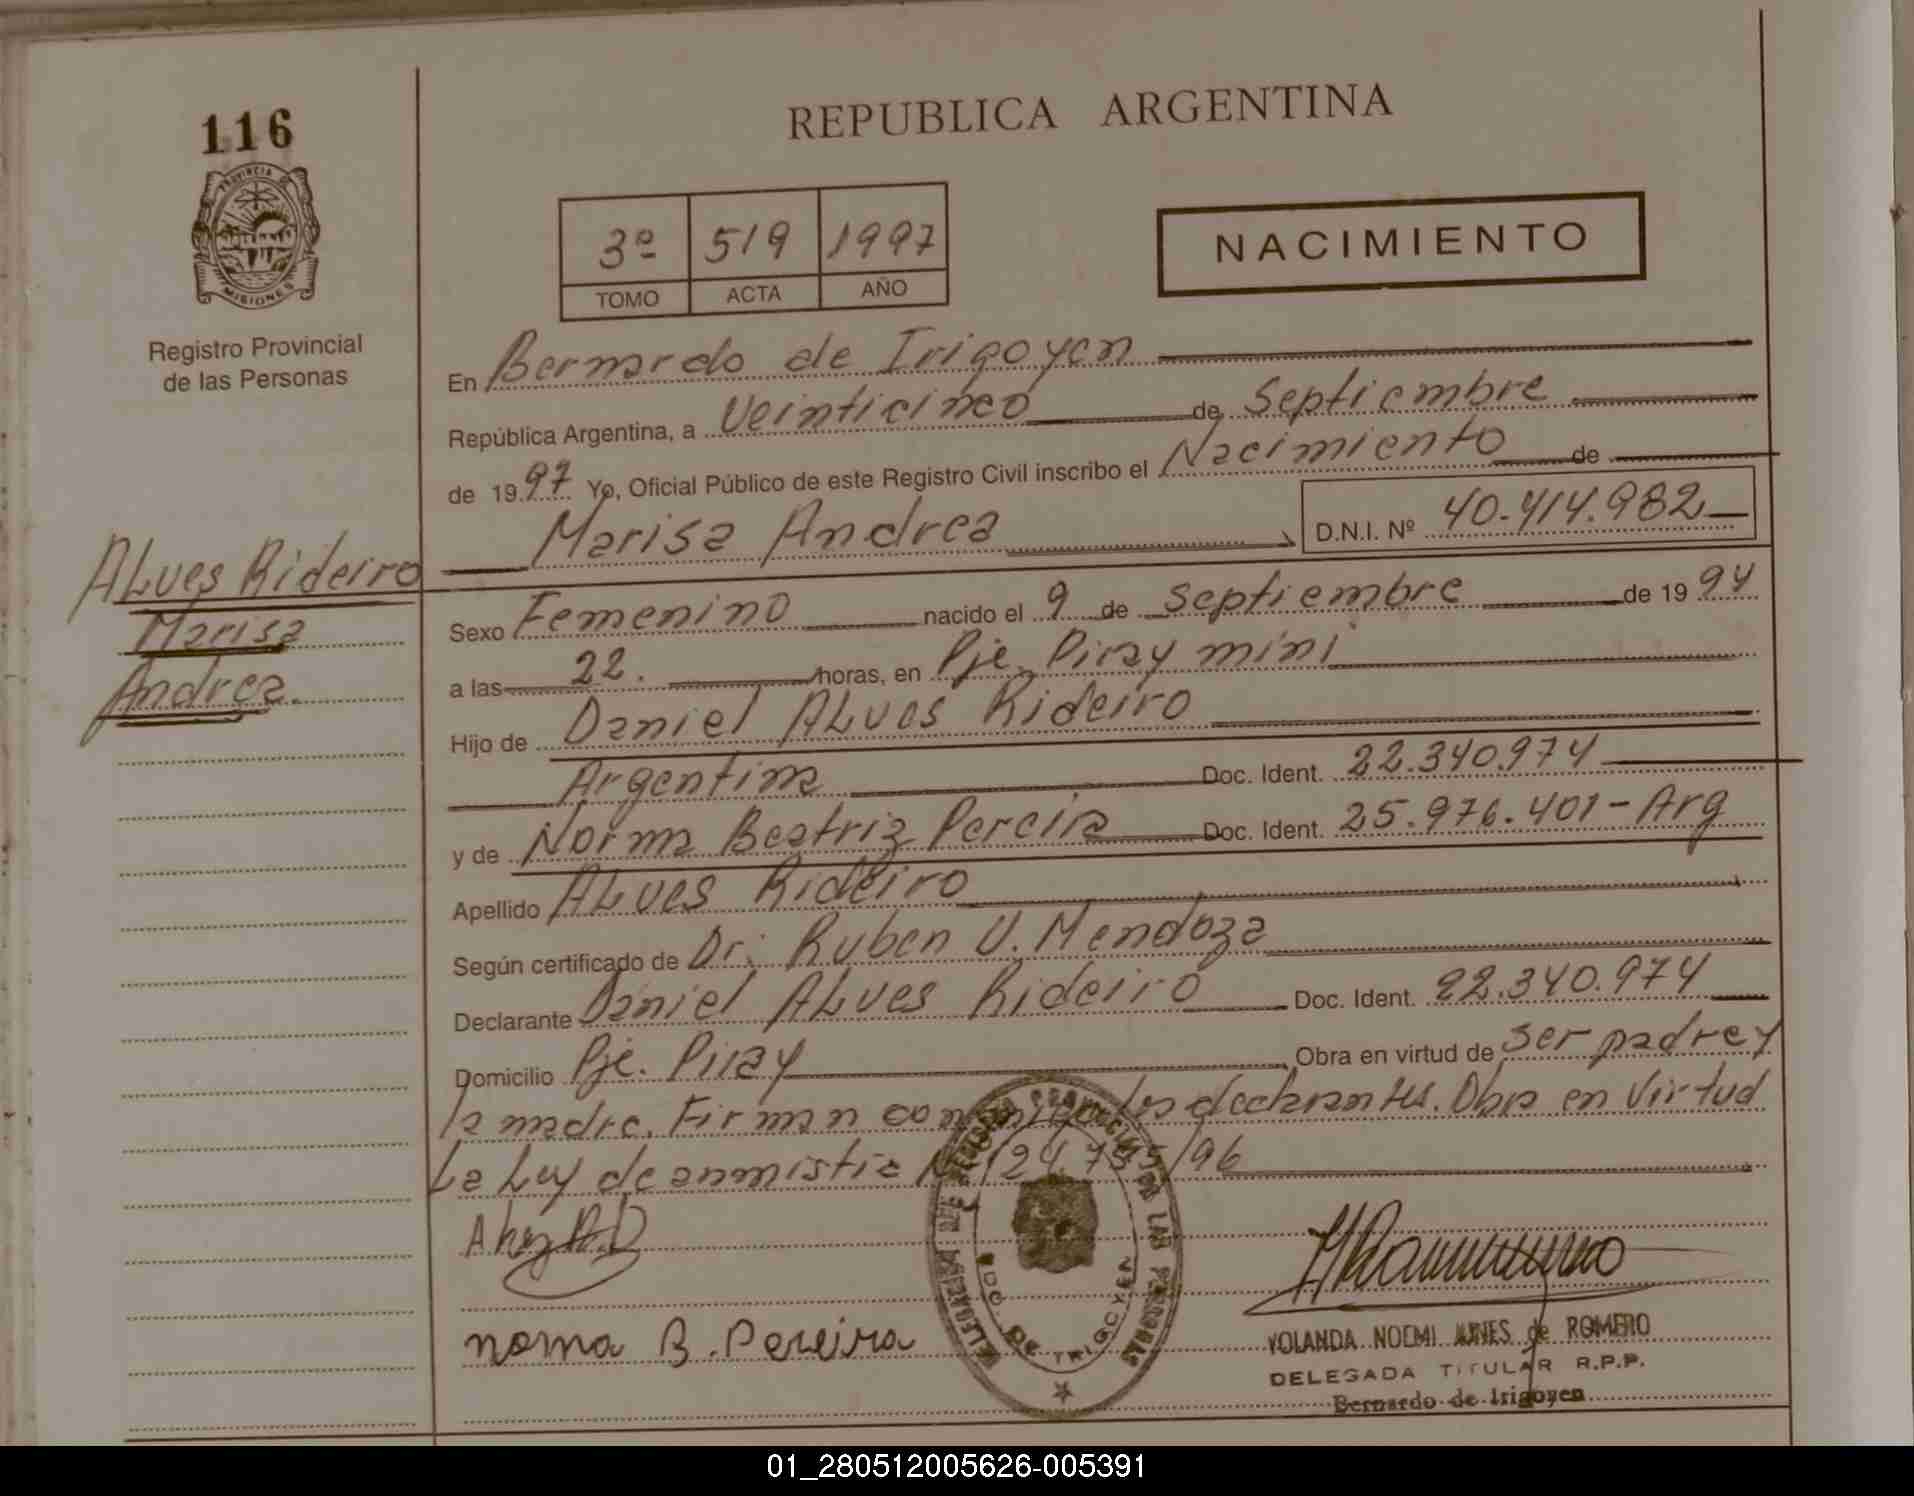 116
PROVINCIA DE
MISIONES
Registro Provincial
de las Personas
REPUBLICA ARGENTINA
3º 519 1997
TOMO ACTA AÑO
NACIMIENTO
En Bernardo de Irigoyen
República Argentina, a Veinticinco de Septiembre
de 1997 Yo, Oficial Público de este Registro Civil inscribo el Nacimiento de
Marisa Andrea D.N.I. Nº 40.414.982
ALves Rideiro
Marisa
Andrea.
Sexo Femenino nacido el 9 de Septiembre de 1994
a las 22. horas, en Pje. Piray mini
Hijo de Daniel ALves Rideiro
Argentina Doc. Ident. 22.340.974
y de Norma Beatriz Pereira Doc. Ident. 25.976.401-Arg
Apellido ALves Rideiro
Según certificado de Dr: Ruben U. Mendoza
Declarante Daniel ALves Rideiro Doc. Ident. 22.340.974
Domicilio Pje. Piray Obra en virtud de ser padre y
la madre. Firman conmigo los declarantes. Obra en Virtud
La Ley de anmistia Nº 24.755/96
noma B. Pereira
DELEGACION DEL REGISTRO PROVINCIAL DE LAS PERSONAS
BDO. DE IRIGOYEN
YOLANDA NOEMI NUNES de ROMERO
DELEGADA TITULAR R.P.P.
Bernardo de Irigoyen
01_280512005626-005391